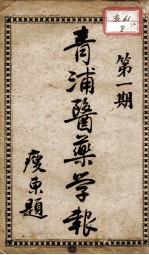 第一期
青浦醫藥学報
瘦東題